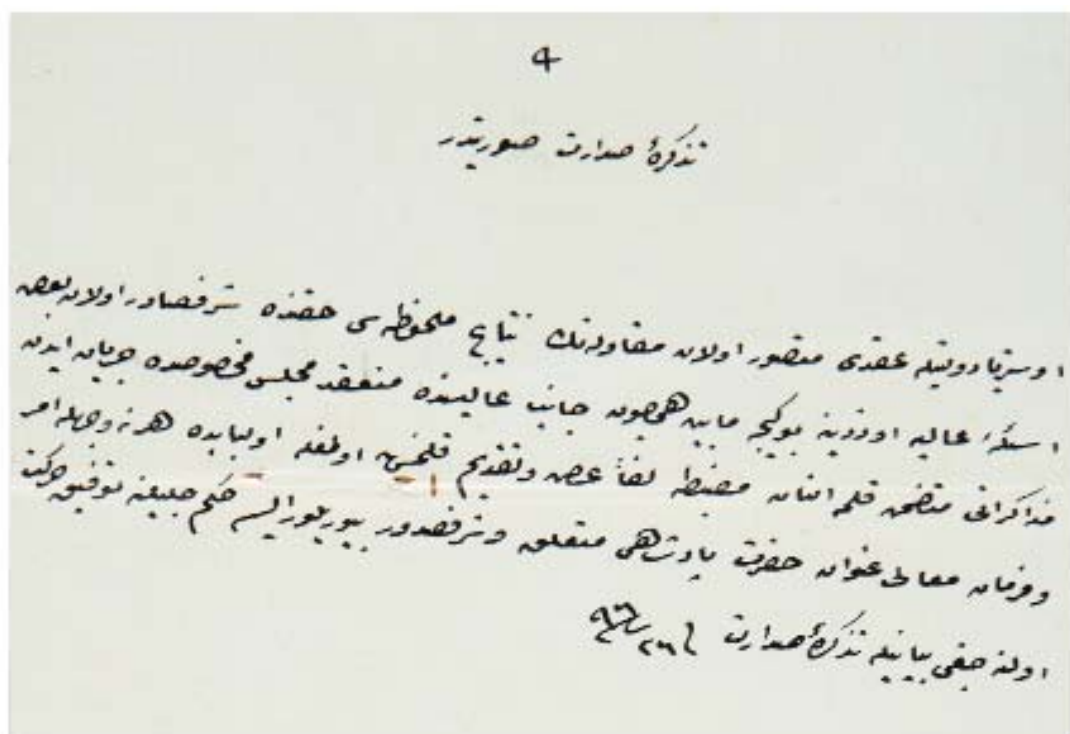 ٩
تذكرهٔ صدارت صورتيدر
اوستريا دولتيله عقدى متصور اولان مقاوله‌نك نتايج ملحوظه‌سى حقنده شرفصادر اولان بعض
اسئلهٔ عاليه اوزرينه بو كيجه مابين همايون جانب عاليسنده منعقد مجلس مخصوصده جريان ايدن
مذاكراتى متضمن قلمه النان مضبطه لفاً عرض وتقديم قلنمش اولمغله اولبابده هر نه وجهله امر
وفرمان معالى عنوان حضرت پادشاهى متعلق وشرفصدور بيوريلور ايسه حكم جليلنه توفيق حركت
اولنه جغى بيانيله تذكرهٔ صدارت